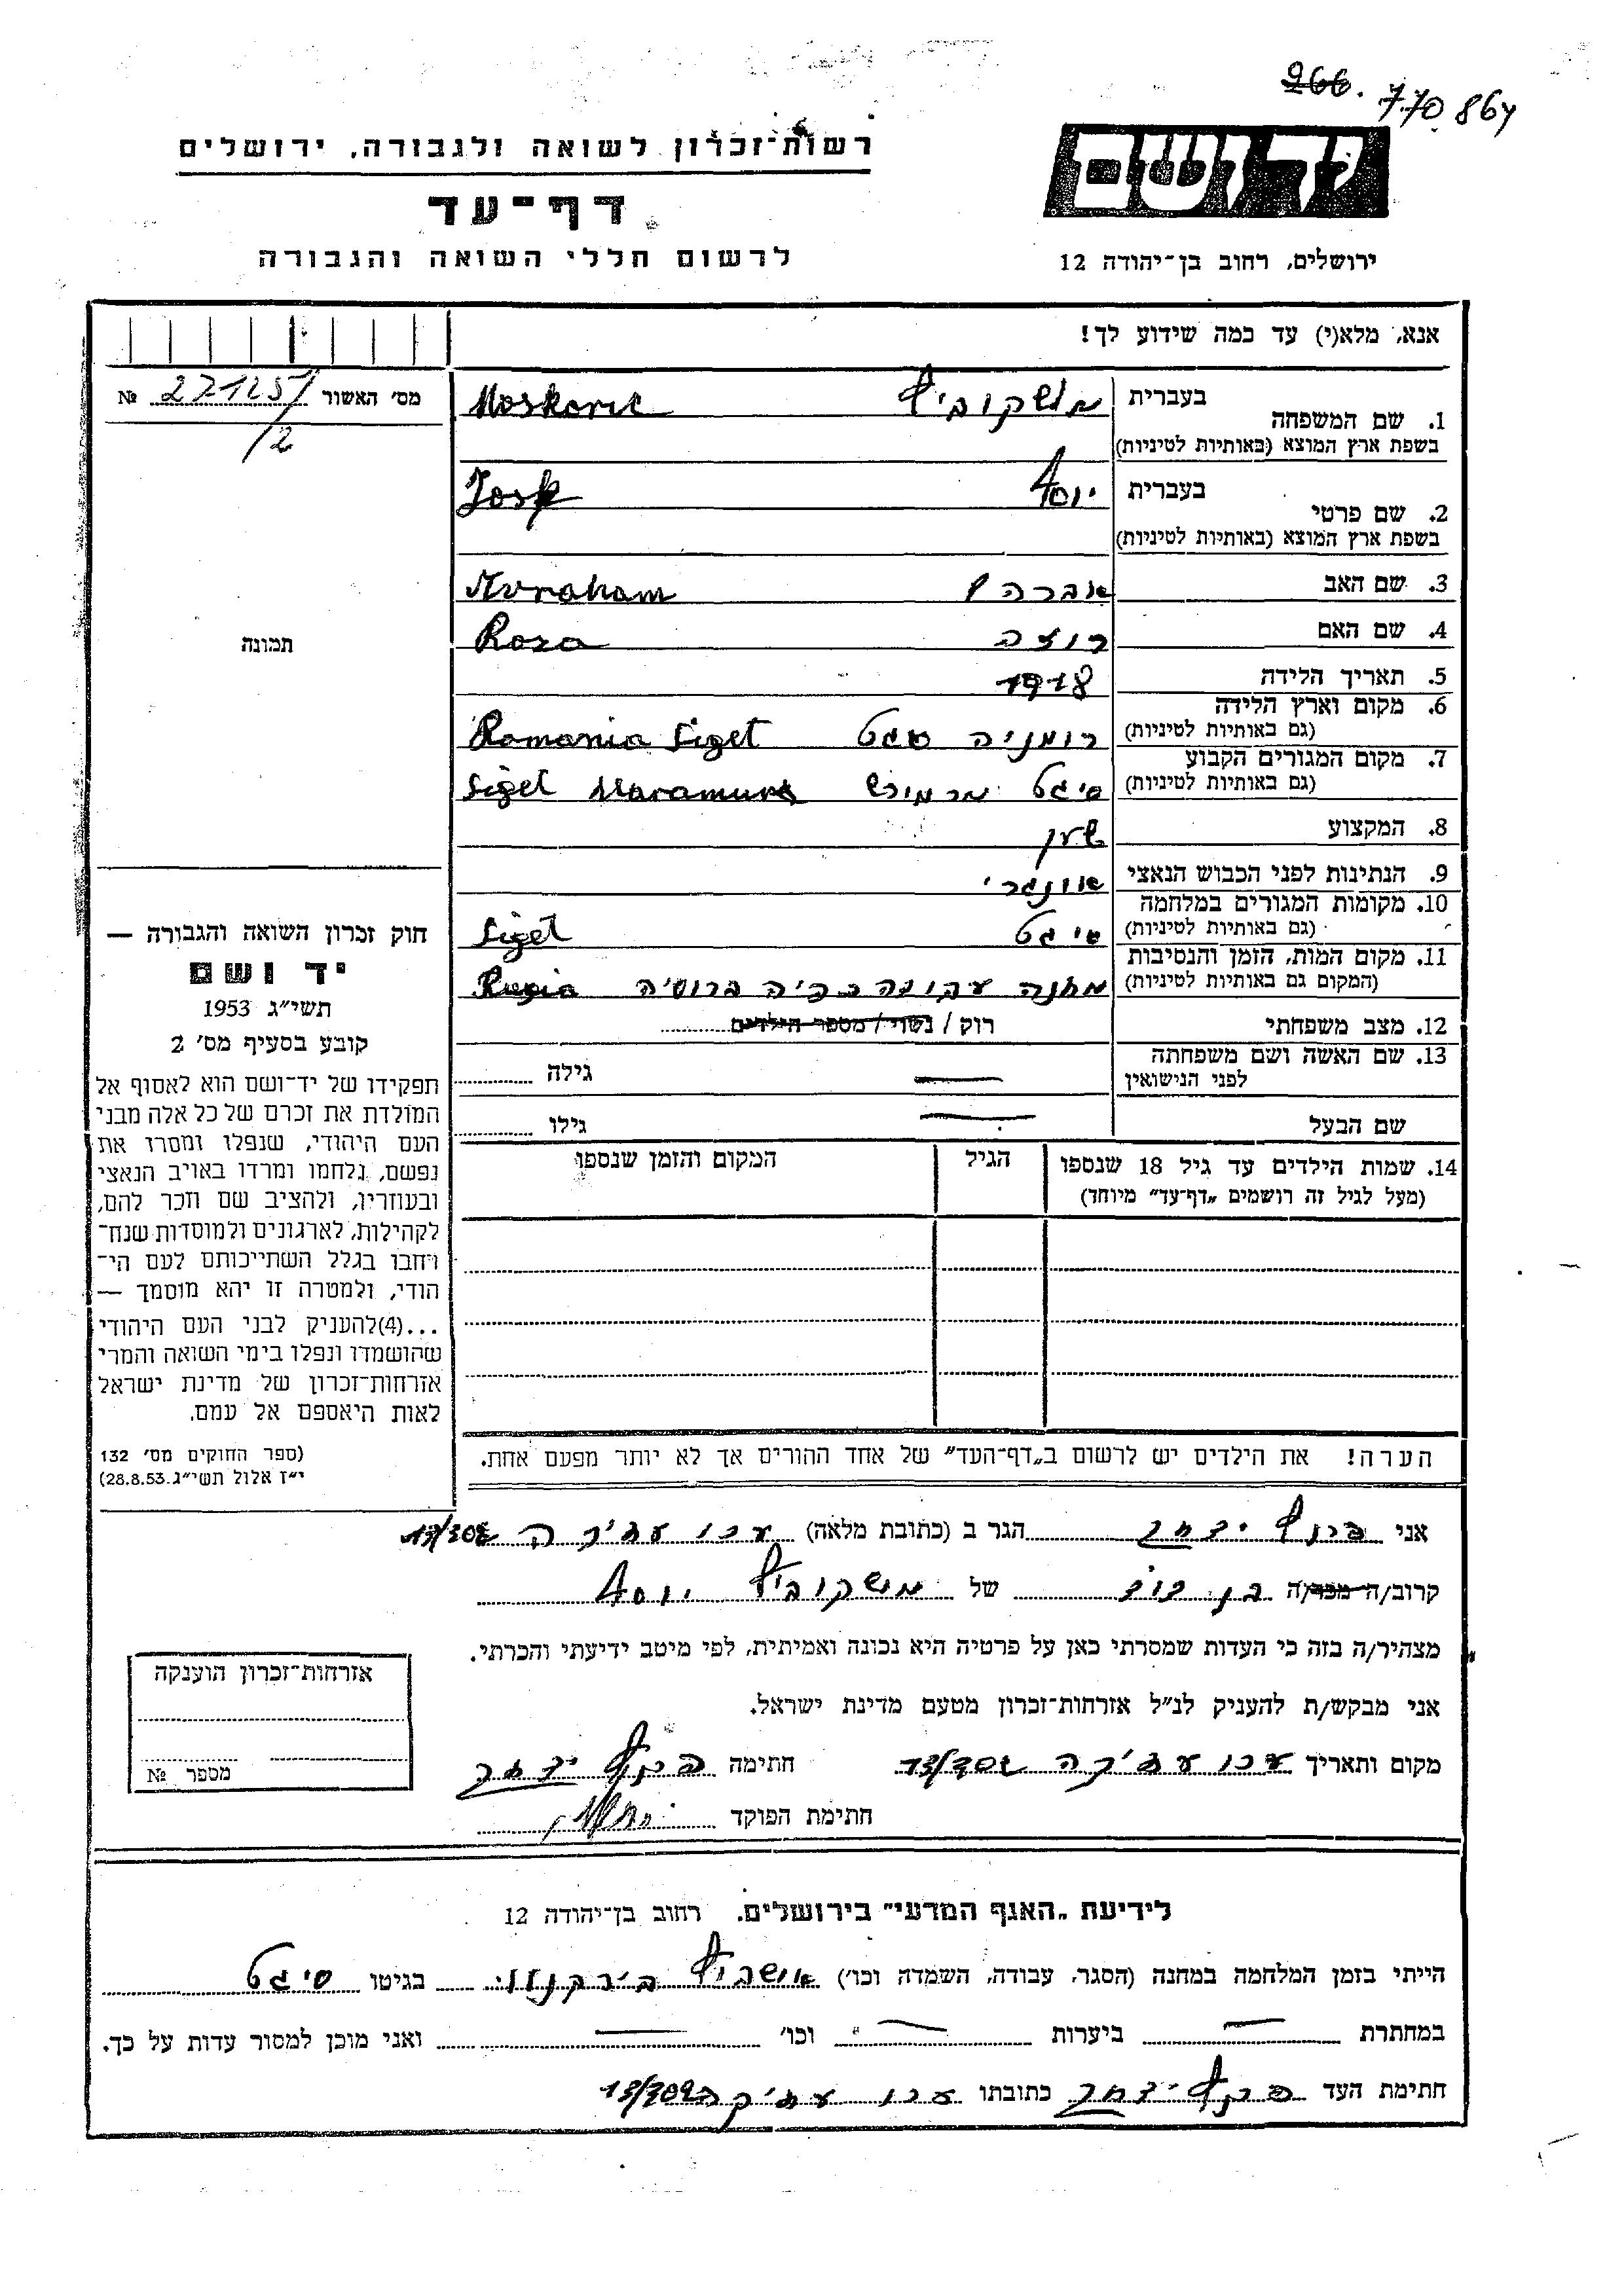 266. 770.864
יד ושם
רשות-זכרון לשואה ולגבורה, ירושלים
דף-עד
לרשום חללי השואה והגבורה
ירושלים, רחוב בן-יהודה 12
אנא, מלא(י) עד כמה שידוע לך!
מס' האשור № 227125/2
תמונה
1. שם המשפחה בעברית מושקוביץ Moskovic
בשפת ארץ המוצא (באותיות לטיניות)
2. שם פרטי בעברית יוסף Josk
בשפת ארץ המוצא (באותיות לטיניות)
3. שם האב אברהם Avraham
4. שם האם רוזה Roza
5. תאריך הלידה 1918
6. מקום וארץ הלידה רומניה סגט Romania Siget
(גם באותיות לטיניות)
7. מקום המגורים הקבוע סיגט מרמורש Siget Maramures
(גם באותיות לטיניות)
8. המקצוע שען
9. הנתינות לפני הכבוש הנאצי אונגרי
10. מקומות המגורים במלחמה סיגט Siget
(גם באותיות לטיניות)
11. מקום המות, הזמן והנסיבות מחנה עבודה כפיה ברוסיה Rusia
(המקום גם באותיות לטיניות)
12. מצב משפחתי רוק / נשוי / מספר הילדים
13. שם האשה ושם משפחתה — גילה
לפני הנישואין
שם הבעל — גילו
14. שמות הילדים עד גיל 18 שנספו הגיל המקום והזמן שנספו
(מעל לגיל זה רושמים "דף-עד" מיוחד)
הערה! את הילדים יש לרשום ב"דף-העד" של אחד ההורים אך לא יותר מפעם אחת.
חוק זכרון השואה והגבורה —
יד ושם
תשי"ג 1953
קובע בסעיף מס' 2
תפקידו של יד-ושם הוא לאסוף אל
המולדת את זכרם של כל אלה מבני
העם היהודי, שנפלו ומסרו את
נפשם, נלחמו ומרדו באויב הנאצי
ובעוזריו, ולהציב שם וזכר להם,
לקהילות, לארגונים ולמוסדות שנח-
רבו בגלל השתייכותם לעם הי-
הודי, ולמטרה זו יהא מוסמך —
...(4)להעניק לבני העם היהודי
שהושמדו ונפלו בימי השואה והמרי
אזרחות-זכרון של מדינת ישראל
לאות היאספם אל עמם.
(ספר החוקים מס' 132
י"ז אלול תשי"ג 28.8.53)
אני יצחק הגר ב (כתובת מלאה) עכו עתיקה
קרוב/ה מכר/ה בן דוד של מושקוביץ יוסף
מצהיר/ה בזה כי העדות שמסרתי כאן על פרטיה היא נכונה ואמיתית, לפי מיטב ידיעתי והכרתי.
אני מבקש/ת להעניק לנ"ל אזרחות-זכרון מטעם מדינת ישראל.
מקום ותאריך עכו עתיקה חתימה יצחק
חתימת הפוקד
אזרחות-זכרון הוענקה
מספר №
לידיעת "האגף המדעי" בירושלים. רחוב בן-יהודה 12
הייתי בזמן המלחמה במחנה (הסגר, עבודה, השמדה וכו') אושביץ בירקנוי בגיטו סיגט
במחתרת — ביערות — וכו' — ואני מוכן למסור עדות על כך.
חתימת העד יצחק כתובתו עכו עתיקה